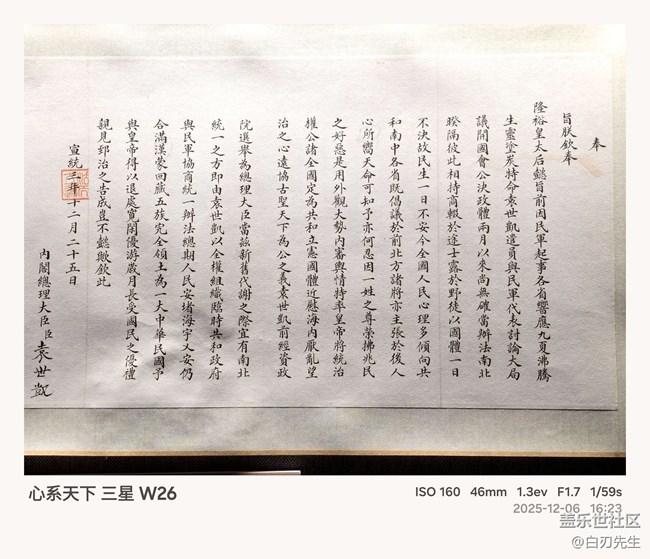 奉
旨朕欽奉
隆裕皇太后懿旨前因民軍起事各省響應九夏沸騰
生靈塗炭特命袁世凱遣員與民軍代表討論大局
議開國會公決政體兩月以來尚無確當辦法南北
暌隔彼此相持商輟於途士露於野徒以國體一日
不決故民生一日不安今全國人民心理多傾向共
和南中各省既倡議於前北方諸將亦主張於後人
心所嚮天命可知予亦何忍因一姓之尊榮拂兆民
之好惡是用外觀大勢內審輿情特率皇帝將統治
權公諸全國定為共和立憲國體近慰海內厭亂望
治之心遠協古聖天下為公之義袁世凱前經資政
院選舉為總理大臣當茲新舊代謝之際宜有南北
統一之方即由袁世凱以全權組織臨時共和政府
與民軍協商統一辦法總期人民安堵海宇乂安仍
合滿漢蒙回藏五族完全領土為一大中華民國予
與皇帝得以退處寬閒優游歲月長受國民之優禮
親見郅治之告成豈不懿歟欽此
宣統三年十二月二十五日
內閣總理大臣臣袁世凱
心系天下 三星 W26
ISO 160 46mm 1.3ev F1.7 1/59s
2025-12-06 16:23
盖乐世社区
@白刃先生